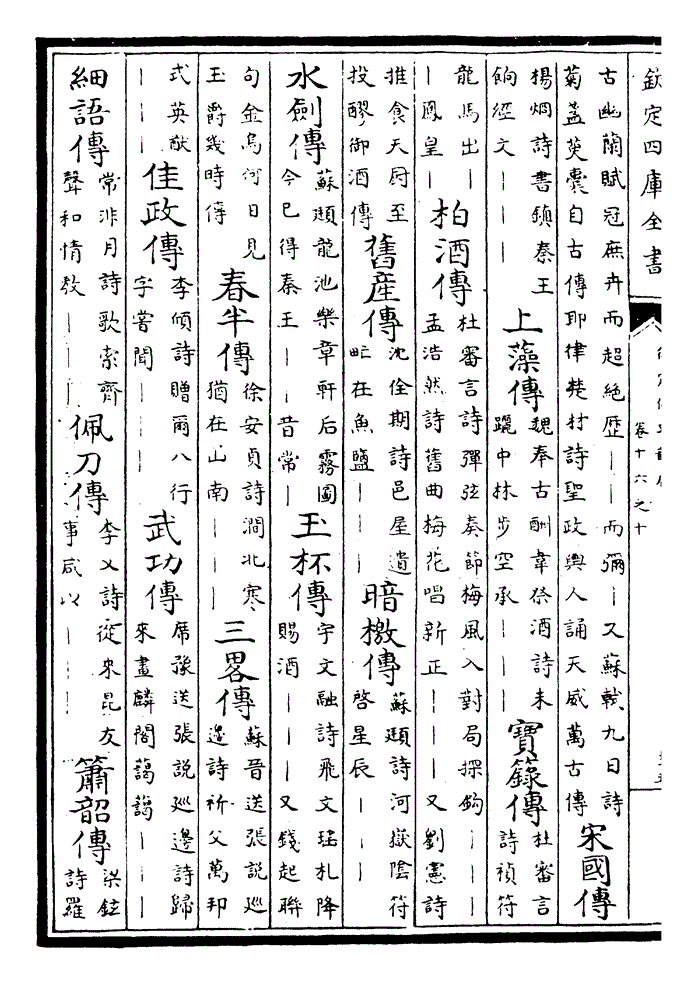 欽定四庫全書
卷十六之十
古幽蘭賦冠庶卉而超絕歴——而彌—又蘇軾九日詩
菊盞萸囊自古傳耶律楚材詩聖政輿人誦天威萬古傳
宋國傳
楊炯詩書鎮秦王
餉經文———
上藻傳
魏奉古酬韋祭酒詩未
躡中林步空承———
寶籙傳
杜審言
詩禎符
龍馬出—
—鳳皇—
柏酒傳
杜審言詩彈弦奏節梅風入對局探鈎———
孟浩然詩舊曲梅花唱新正———又劉憲詩
推食天厨至
投醪御酒傳
舊產傳
沈佺期詩邑屋遺
甿在魚鹽———
暗檄傳
蘇頲詩河嶽陰符
啓星辰——
水劍傳
蘇頲龍池樂章軒后霧圖
今已得秦王——昔常—
玉杯傳
宇文融詩飛文瑤札降
賜酒———又錢起聯
句金烏何日見
玉爵幾時傳
春半傳
徐安貞詩澗北寒
猶在山南———
三畧傳
蘇晉送張說巡
邊詩祈父萬邦
式英猷
———
佳政傳
李頎詩贈爾八行
字當聞———
武功傳
席豫送張說巡邊詩歸
來畫麟閣藹藹———
細語傳
常非月詩歌索齊
聲和情教———
佩刀傳
李乂詩從來昆友
事咸以———
簫韶傳
梁鉉
詩羅